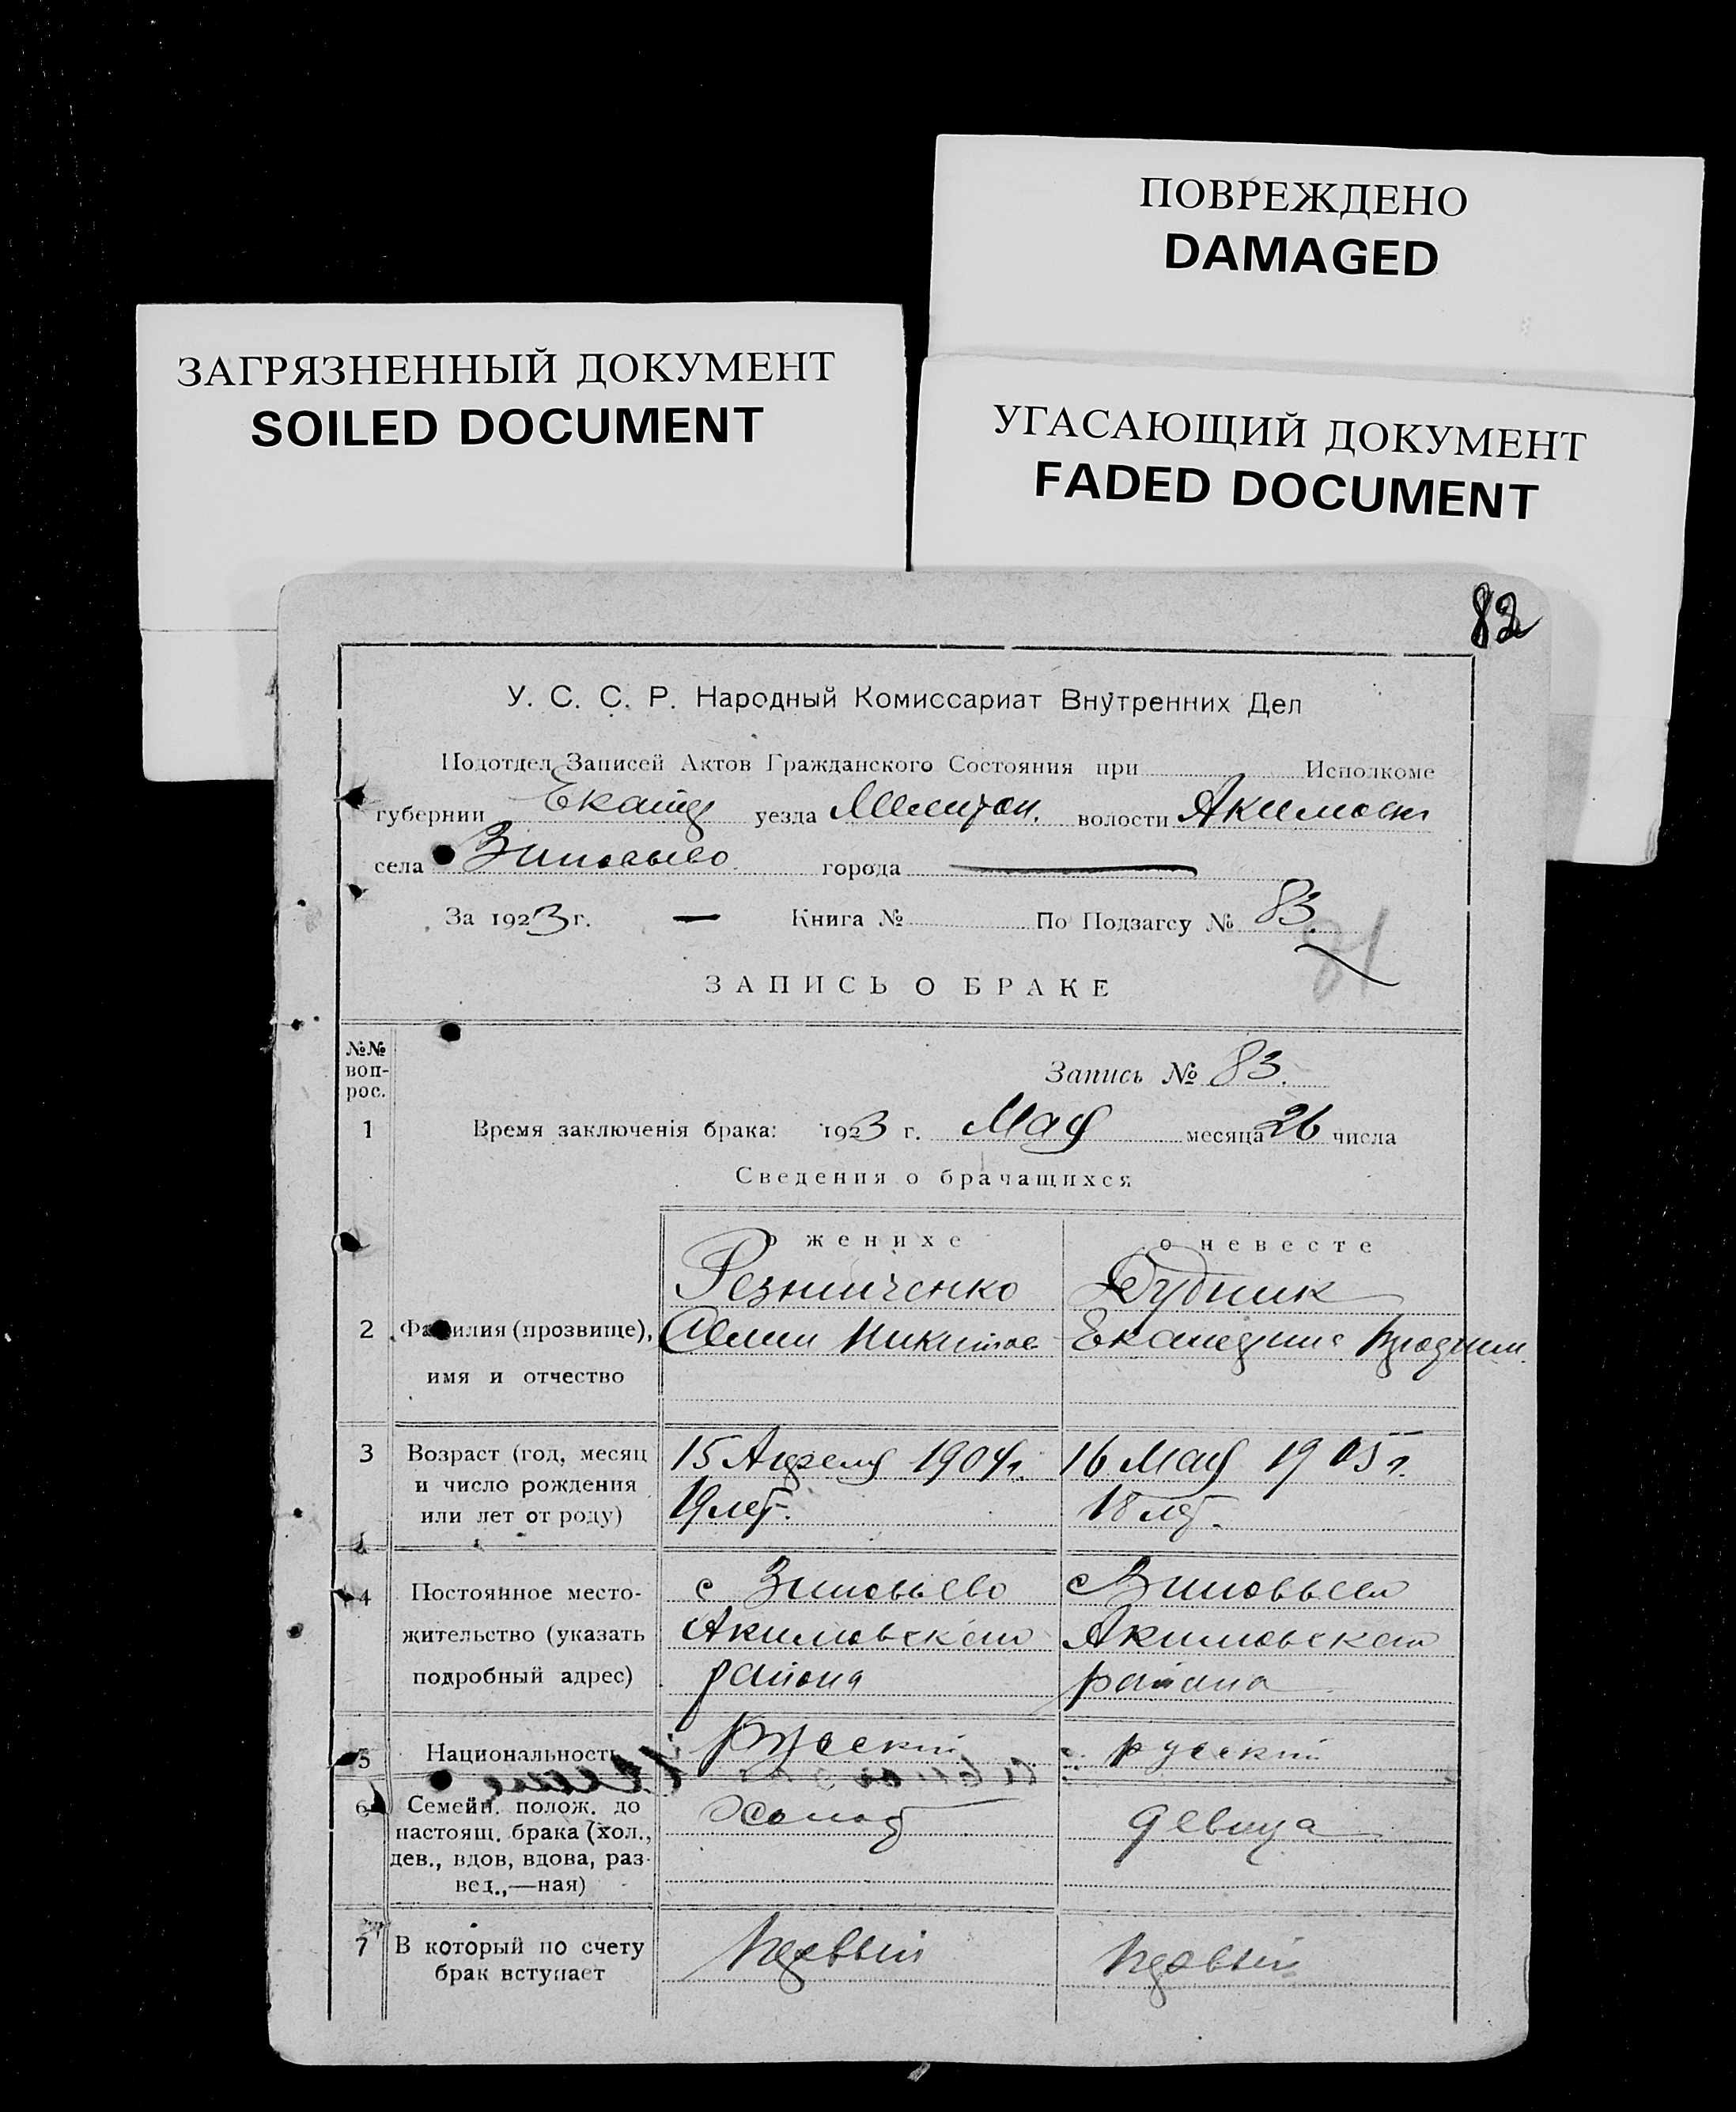 82
ПОВРЕЖДЕНО
DAMAGED
ЗАГРЯЗНЕННЫЙ ДОКУМЕНТ
SOILED DOCUMENT
УГАСАЮЩИЙ ДОКУМЕНТ
FADED DOCUMENT
У. С. С. Р. Народный Комиссариат Внутренних Дел
Подотдел Записей Актов Гражданского Состояния при Исполкоме
губернии Екатер уезда Мелитоп. волости Акимовск
села Зиновьево города
За 1923 г. — Книга № По Подзагсу № 83.
81
ЗАПИСЬ О БРАКЕ
№№ воп-рос.
Запись № 83.
1 Время заключенія брака: 1923 г. Мая месяца 26 числа
Сведения о брачащихся
о женихе о невесте
Резниченко Дудник
2 Фамилия (прозвище), Никитов Екатерина
имя и отчество
3 Возраст (год, месяц 15 Апреля 1904 г. 16 Мая 1905 г.
и число рождения 19 лет. 18 лет.
или лет от роду)
4 Постоянное место- с Зиновьево с Зиновьево
жительство (указать Акимовского Акимовского
подробный адрес) района района
5 Национальность русский русский
6 Семейн. полож. до Холост девица
настоящ. брака (хол.,
дев., вдов, вдова, раз-
вед.,—ная)
7 В который по счету первый первый
брак вступает